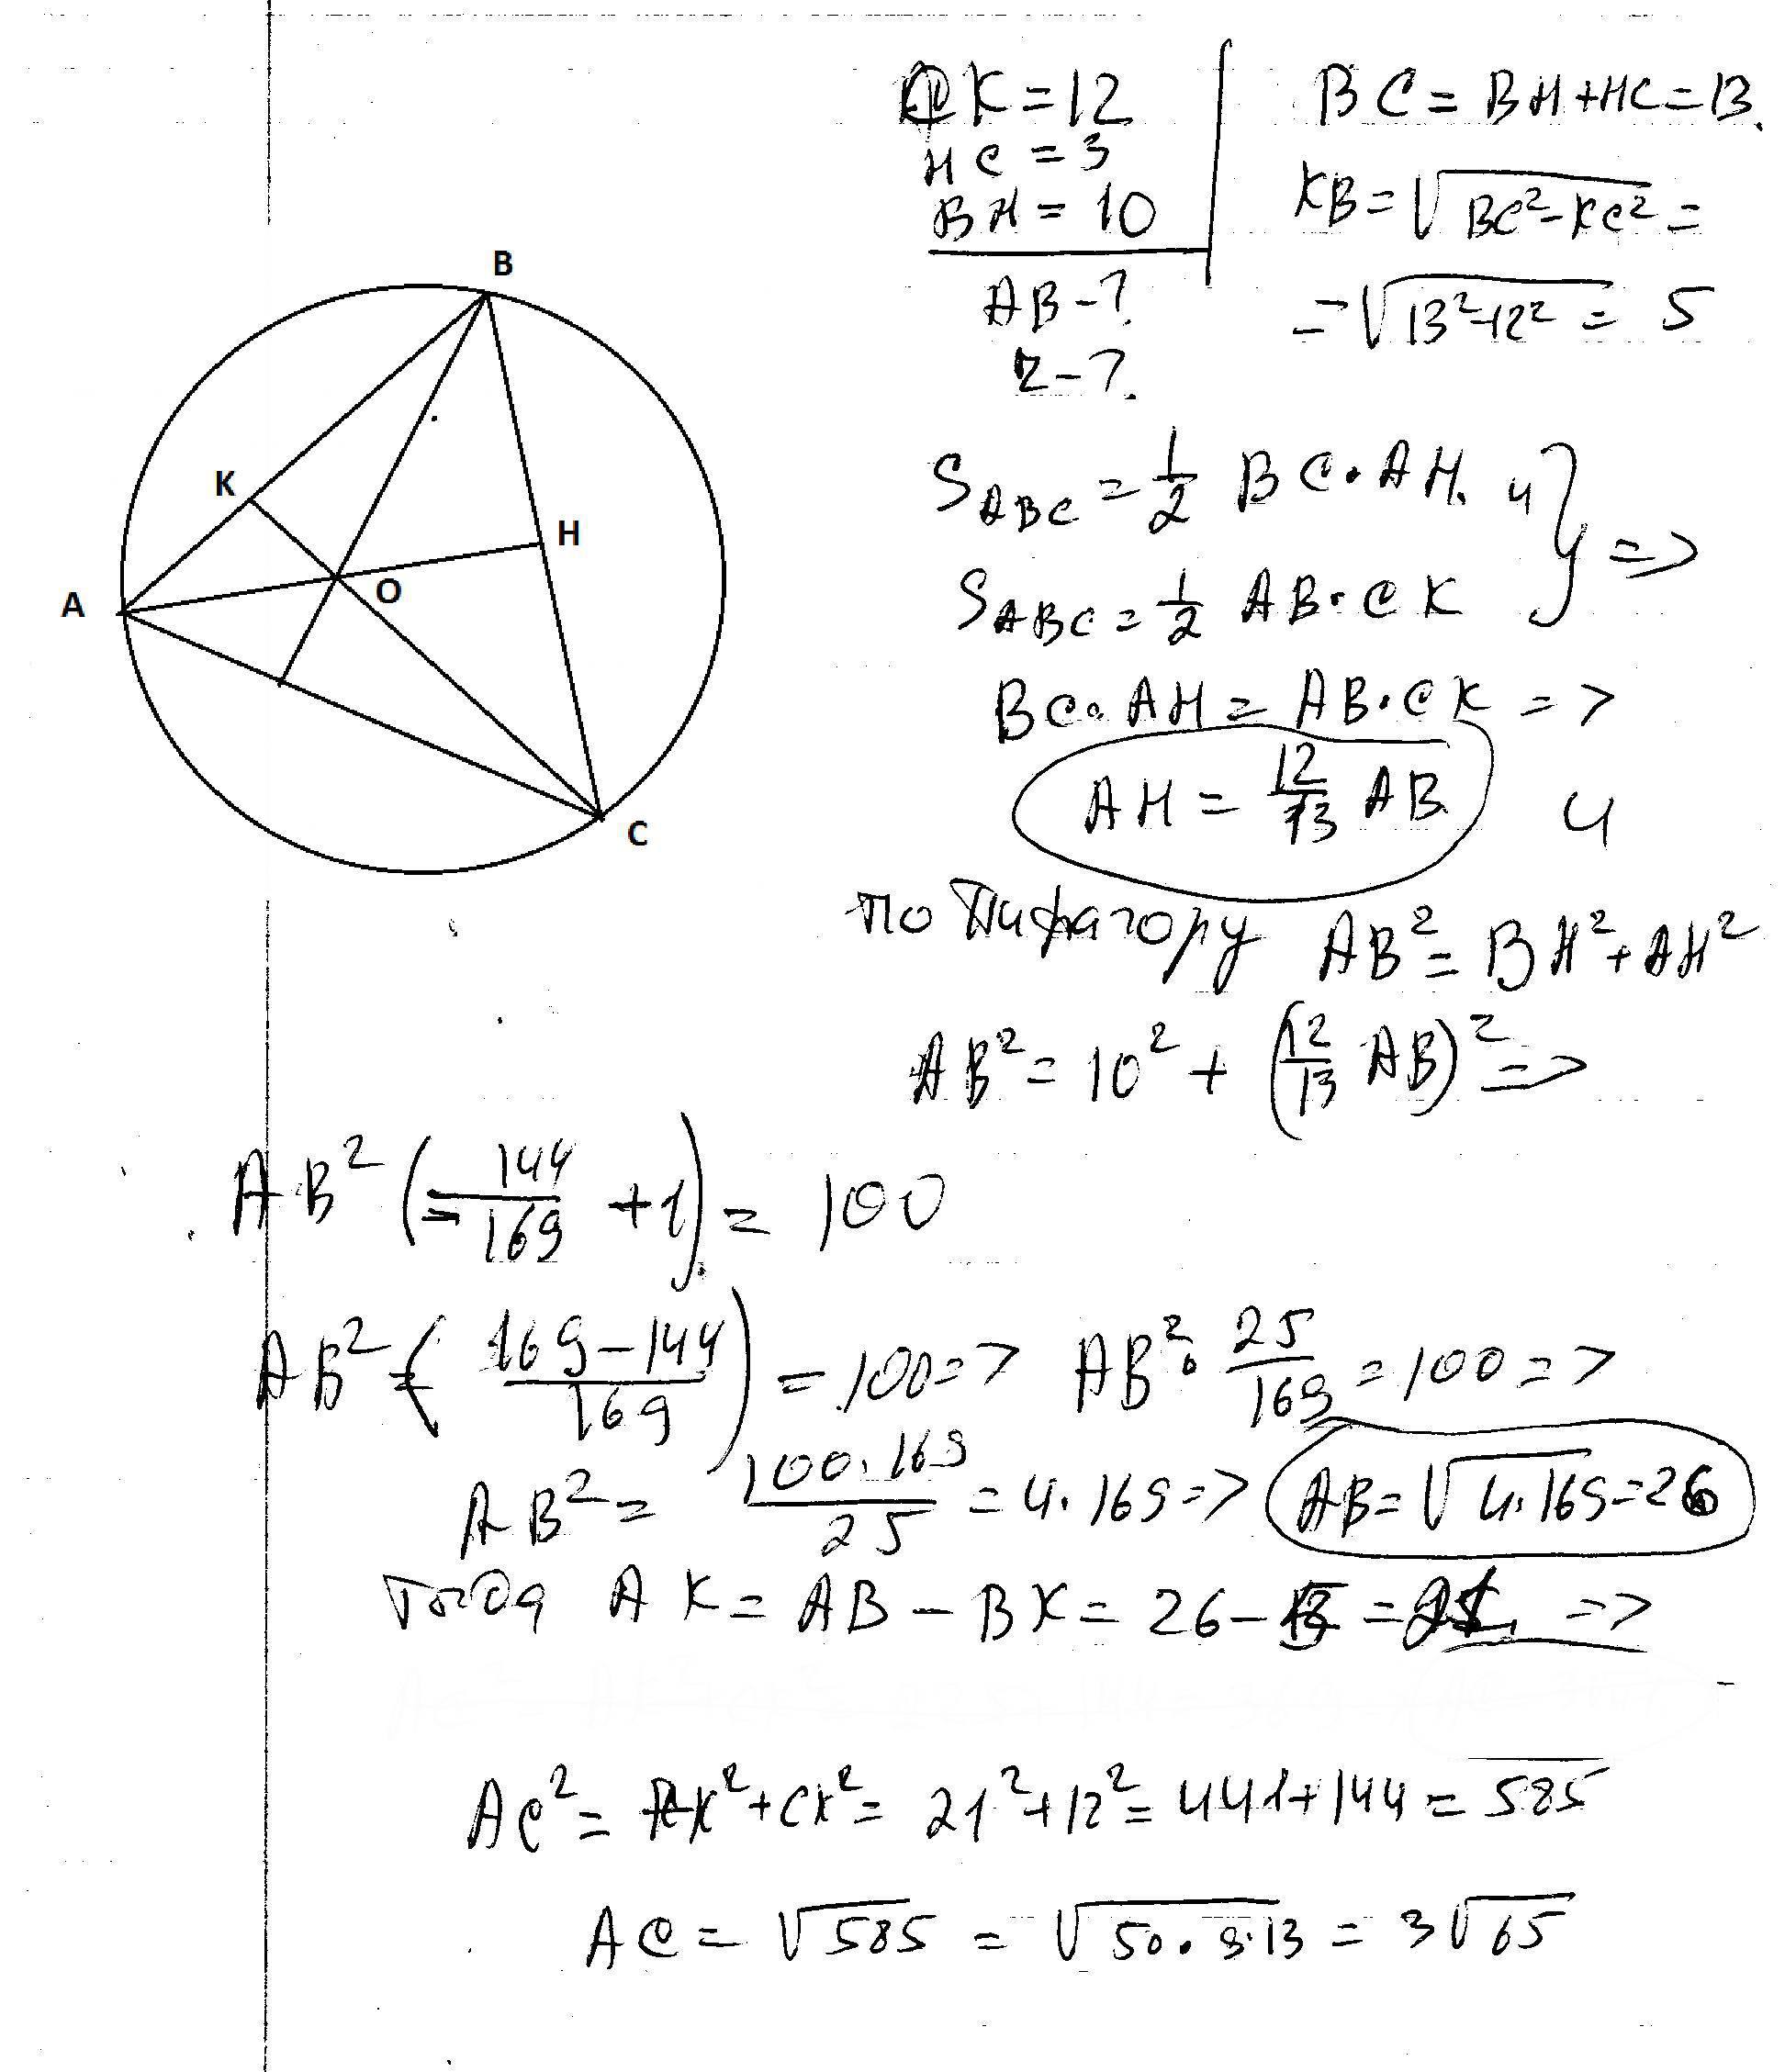 CK = 12
HC = 3
BH = 10
AB - ?
r - ?
BC = BH + HC = 13.
KB = √(BC² - KC²) =
= √(13² - 12²) = 5
B
K
H
A
O
C
S_ABC = 1/2 BC · AH. и } =>
S_ABC = 1/2 AB · CK
BC · AH = AB · CK =>
AH = 12/13 AB и
по Пифагору AB² = BH² + AH²
AB² = 10² + (12/13 AB)² =>
AB² (- 144/169 + 1) = 100
AB² (169 - 144 / 169) = 100 => AB² · 25/169 = 100 =>
AB² = 100 · 169 / 25 = 4 · 169 => AB = √(4 · 169) = 26
тогда AK = AB - BK = 26 - 5 = 21 =>
AC² = AK² + CK² = 21² + 12² = 441 + 144 = 585
AC = √585 = √(50 · 9 · 13) = 3√65